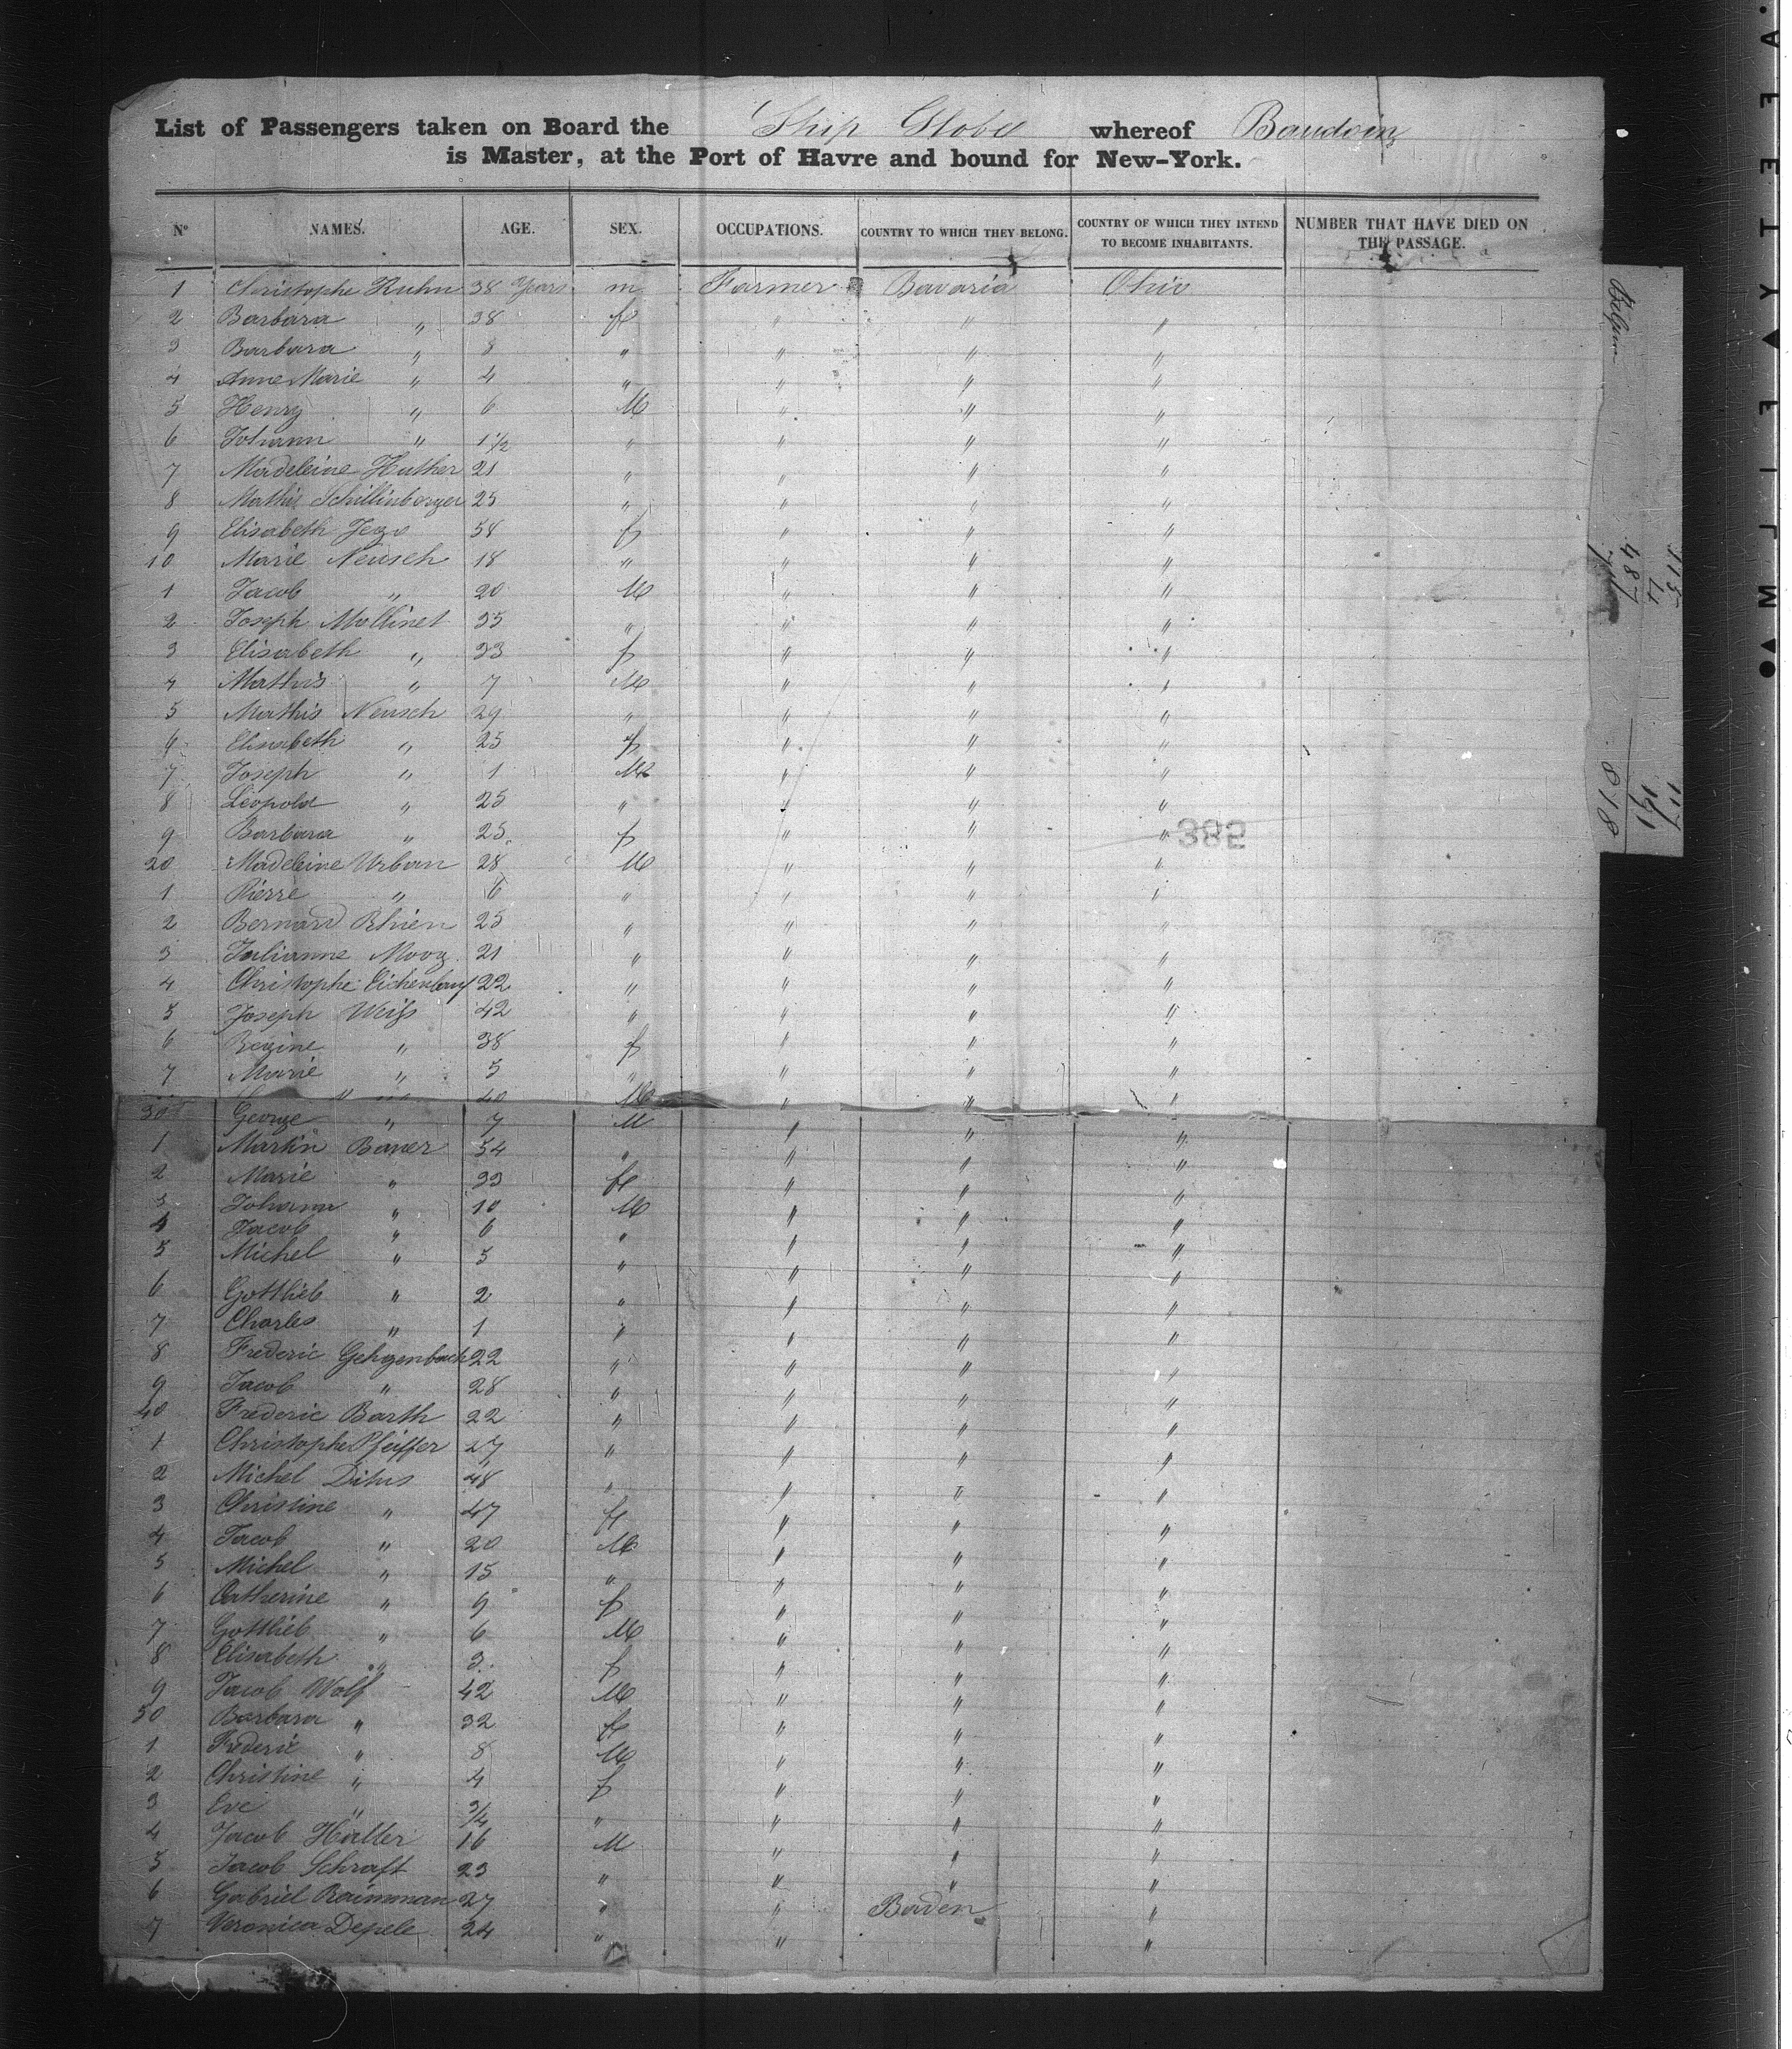 List of Passengers taken on Board the Ship Globe whereof Baudoin
is Master, at the Port of Havre and bound for New-York.
N° NAMES. AGE. SEX. OCCUPATIONS. COUNTRY TO WHICH THEY BELONG. COUNTRY OF WHICH THEY INTEND TO BECOME INHABITANTS. NUMBER THAT HAVE DIED ON THE PASSAGE.
1 Christophe Kuhn 38 Years m Farmer Bavaria Ohio
2 Barbara " 38 f " " "
3 Barbara " 8 " " " "
4 Anne Marie " 4 " " " "
5 Henry " 6 M " " "
6 Johann " 1 1/2 " " " "
7 Madeleine Huther 21 " " " "
8 Mathis Schillinberger 25 " " " "
9 Elisabeth 58 f " " "
10 Marie Neusch 18 " " " "
1 Jacob " 20 M " " "
2 Joseph Mollinet 35 " " " "
3 Elisabeth " 33 f " " "
4 Mathis " 7 M " " "
5 Mathis Neusch 29 " " " "
6 Elisabeth " 25 f " " "
7 Joseph " 1 M " " "
8 Léopold " 25 " " " "
9 Barbara " 25 f " " "
382
20 Madeleine Urban 28 M " " "
1 Pierre " 6 " " " "
2 Bernard Rhien 25 " " " "
3 Julianne Moog 21 " " " "
4 Christophe Eichenlauf 22 " " " "
5 Joseph Weiss 42 " " " "
6 Regine " 38 f " " "
7 Marie " 5 " " " "
40 M " " "
30 George " 7 M " " "
1 Martin Bauer 54 " " " "
2 Marie " 33 f " " "
3 Johann " 10 M " " "
4 Jacob " 6 " " " "
5 Michel " 5 " " " "
6 Gottlieb " 2 " " " "
7 Charles " 1 " " " "
8 Frederic Gehgenbach 22 " " " "
9 Jacob " 28 " " " "
40 Frederic Barth 22 " " " "
1 Christophe Pfeiffer 27 " " " "
2 Michel Ditus 48 " " " "
3 Christine " 47 f " " "
4 Jacob " 20 M " " "
5 Michel " 15 " " " "
6 Catherine " 9 f " " "
7 Gottlieb " 6 M " " "
8 Elisabeth " 3 f " " "
9 Jacob Wolf 42 M " " "
50 Barbara " 32 f " " "
1 Frederic " 8 M " " "
2 Christine " 4 f " " "
3 Eve " 3/4 " " " "
4 Jacob Halter 16 M " " "
5 Jacob Schraft 23 " " " "
6 Gabriel Raimman 27 " " Baden "
7 Veronica Depele 24 " " "
Belgium
115
4
487
117
191
818